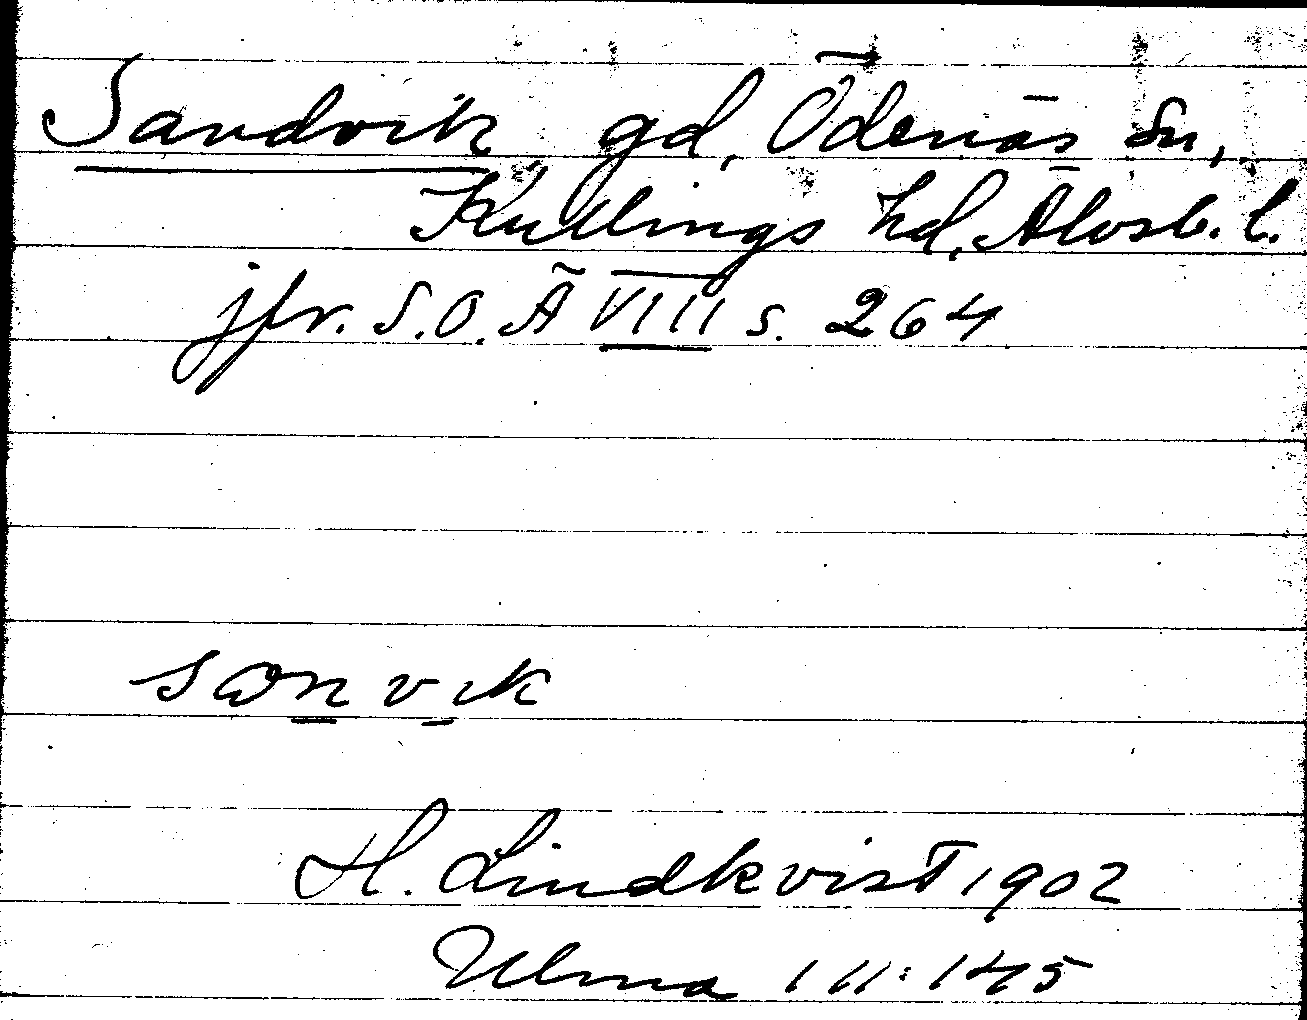 Sandvik gd, Ödenäs sn,
Kullings hd, Älvsb. l.
jfr. S.O. Ä VIII s. 264
sanvik
H. Lindkvist 1902
Ulma 111:145